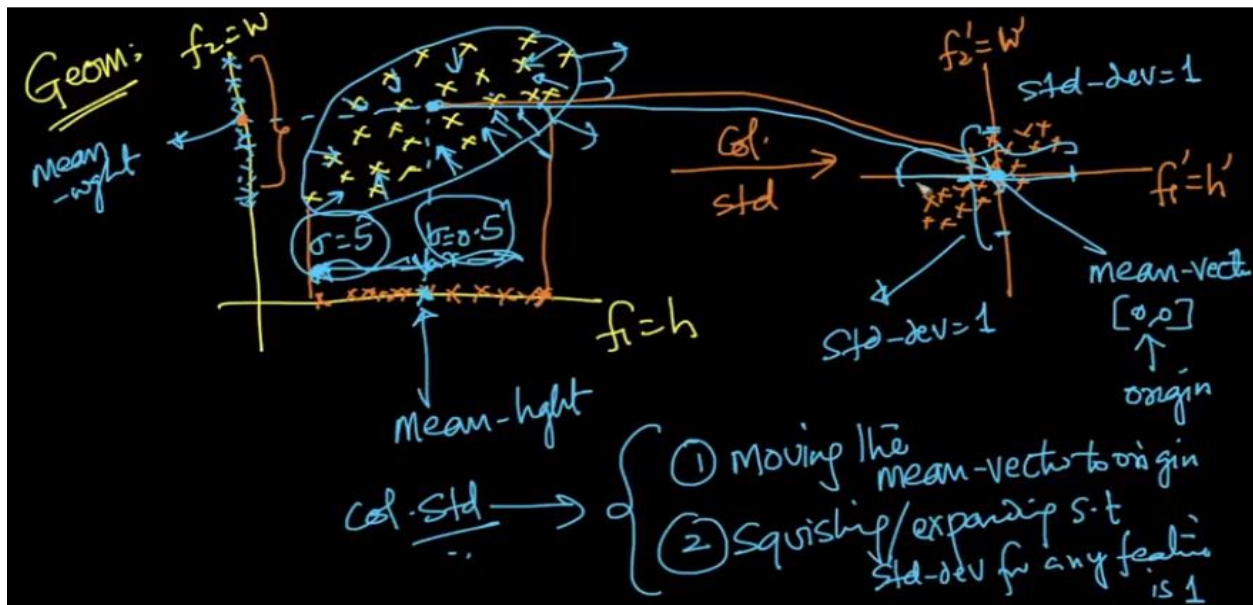 Geom:
f₂=w
mean
-wght
σ=5
σ=0.5
f₁=h
mean-hght
Col.
std
f₂'=w'
std-dev=1
f₁'=h'
std-dev=1
mean-vect
[0,0]
origin
Col. Std →
① Moving the
mean-vector to origin
② Squishing/expanding s.t
std-dev for any feature
is 1